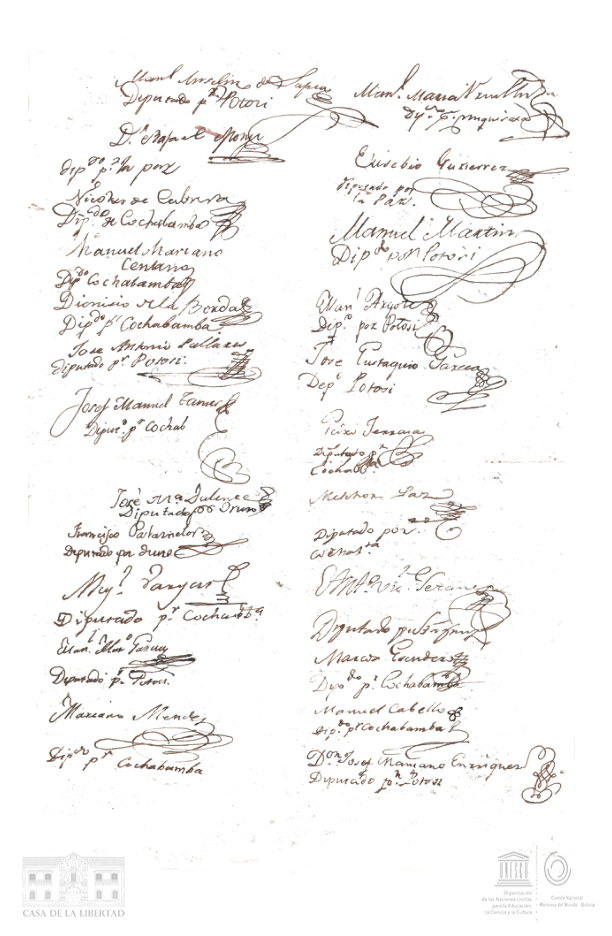 Man.l Anselm de Tapia
Diputado p.r Potosi
D.r Rafael Monje
dip.do p.r la paz
Nicolas de Cabrera
Dip.do de Cochabamba
Manuel Mariano
Centeno
Dip.do Cochabamba
Dionisio de la Borda
Dip.do p.r Cochabamba
Jose Antonio Pallares
diputado p.r Potosi.
Josef Manuel Tames
Diput.o p.r Cochab
José M.a Dalence
Diputado por Oruro
Francisco Palazuelos
Diputado por Oruro
Mig.l Vargas
Diputado p.r Cochamb.a
Diputado p.r Potosi.
Mariano Mendez
Dip.do p.r Cochabamba
Man.l Maria
Eusebio Gutierrez
diputado por
la Paz.
Manuel Martin
Dip.do por Potosi
Man.l Argote
Dip.o por Potosi
José Eustaquio Gareca
Dep.o Potosi
Pedro Terrazas
Diputado p.r
Cochab.a
Melchor Paz
Diputado por
Diputado
Marcos Escudero
Dip.do p.r Cochabamba
Manuel Cabello
Dip.do p.r Cochabamba
D.on Josef Mariano Enriquez
Diputado p.r Potosi
CASA DE LA LIBERTAD
UNESCO
Organización
de las Naciones Unidas
para la Educación,
la Ciencia y la Cultura
Comité Nacional
Memoria del Mundo - Bolivia